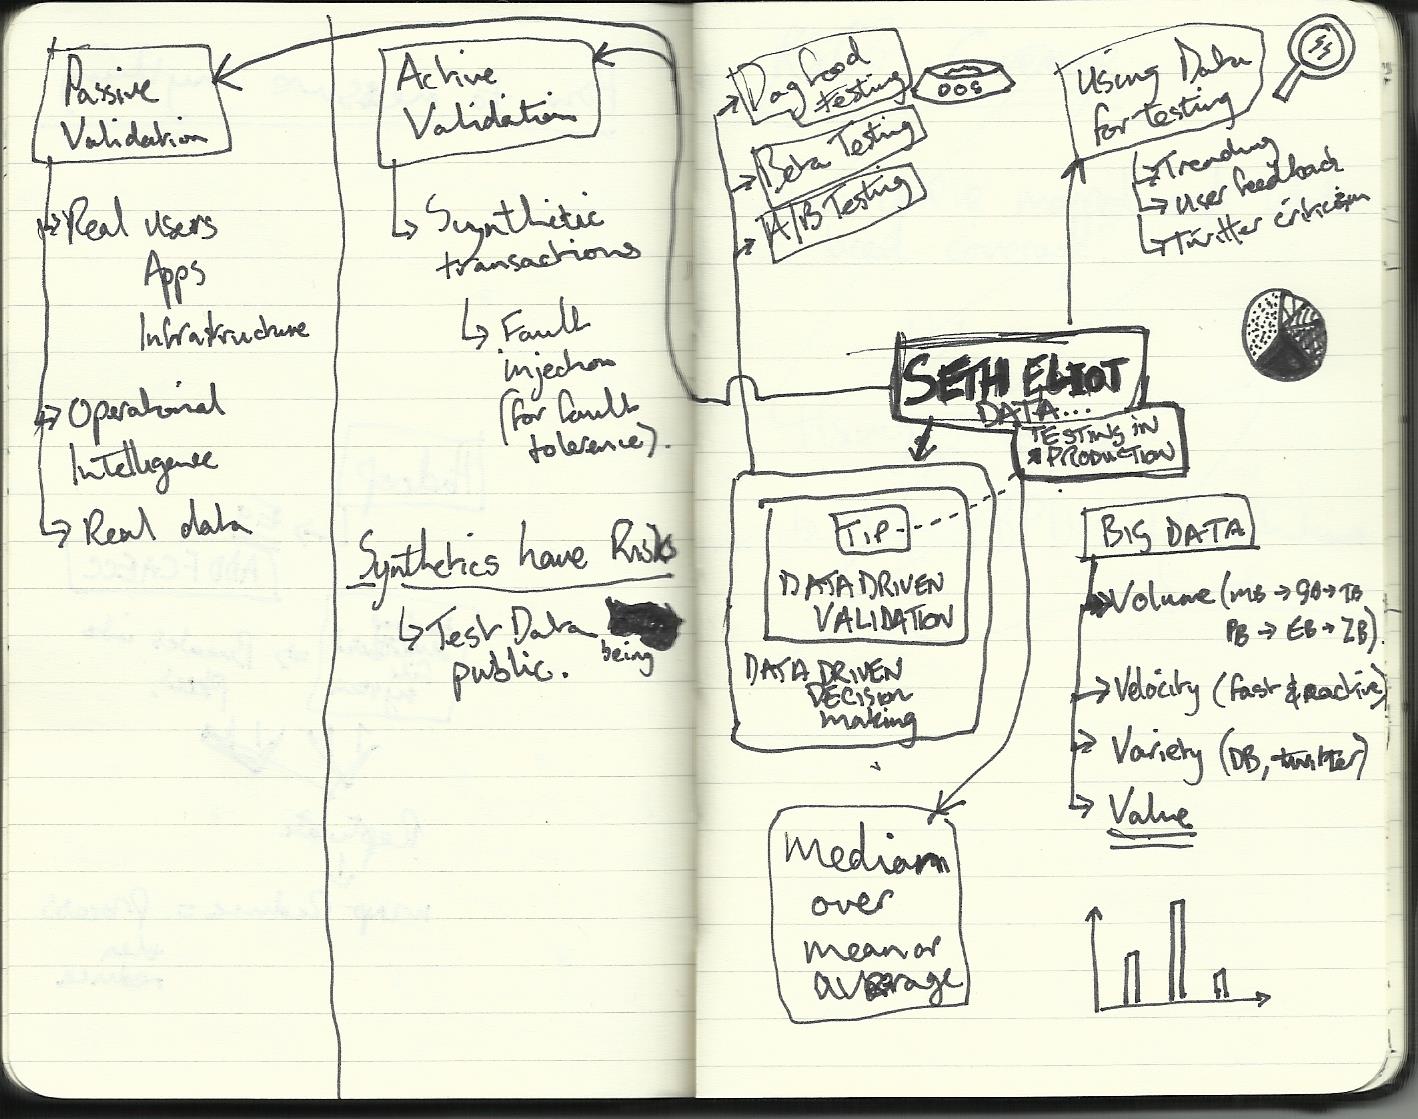 Passive
Validation
Real users
Apps
Infrastructure
Operational
Intelligence
Real data
Active
Validation
Synthetic
transactions
Fault
injection
(for fault
tolerence).
Synthetics have Risks
Test Data
being
public.
Dog food
testing
DOG
Beta Testing
A/B Testing
Using Data
for testing
Trending
User feedback
Twitter criticism
SETH ELIOT
DATA...
TESTING IN
PRODUCTION
TIP
DATA DRIVEN
VALIDATION
DATA DRIVEN
DECISION
making
BIG DATA
Volume (MB → GB → TB
PB → EB → ZB).
Velocity (fast & reactive)
Variety (DB, twitter)
Value
Median
over
mean or
average